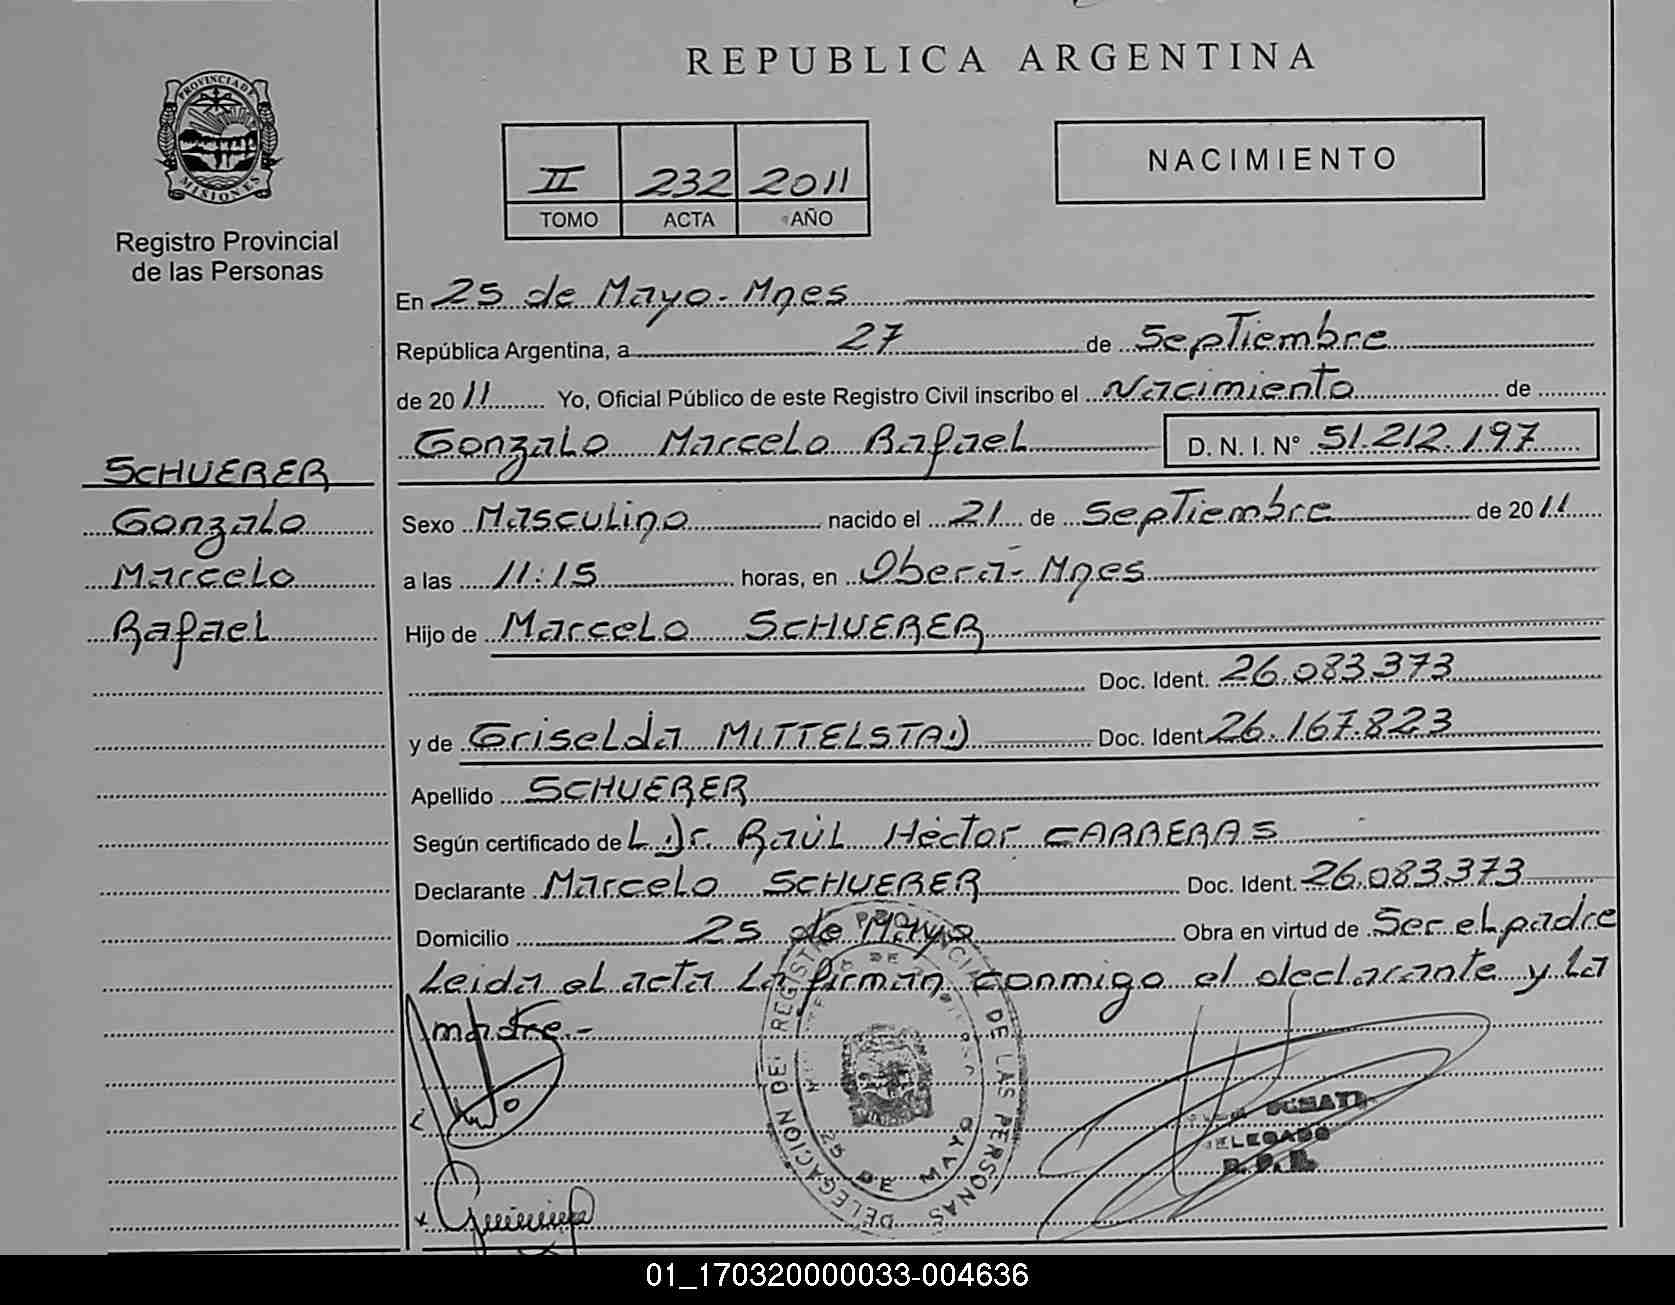 REPUBLICA ARGENTINA
PROVINCIA DE
MISIONES
Registro Provincial
de las Personas
II 232 2011
TOMO ACTA AÑO
NACIMIENTO
SCHUERER
Gonzalo
Marcelo
Rafael
En 25 de Mayo - Mnes
República Argentina, a 27 de Septiembre
de 2011 Yo, Oficial Público de este Registro Civil inscribo el Nacimiento de
Gonzalo Marcelo Rafael D. N. I. Nº 51.212.197
Sexo Masculino nacido el 21 de Septiembre de 2011
a las 11:15 horas, en Oberá - Mnes
Hijo de Marcelo SCHUERER
Doc. Ident. 26.083.373
y de Griselda MITTELSTAD Doc. Ident 26.167.823
Apellido SCHUERER
Según certificado de L Dr. Raúl Héctor CARRERAS
Declarante Marcelo SCHUERER Doc. Ident. 26.083.373
Domicilio 25 de Mayo Obra en virtud de Ser el padre
Leida el acta la firman conmigo el declarante y la
madre.-
DELEGACION DEL REGISTRO PROVINCIAL DE LAS PERSONAS
25 DE MAYO
DELEGADO
R. P. P.
01_170320000033-004636